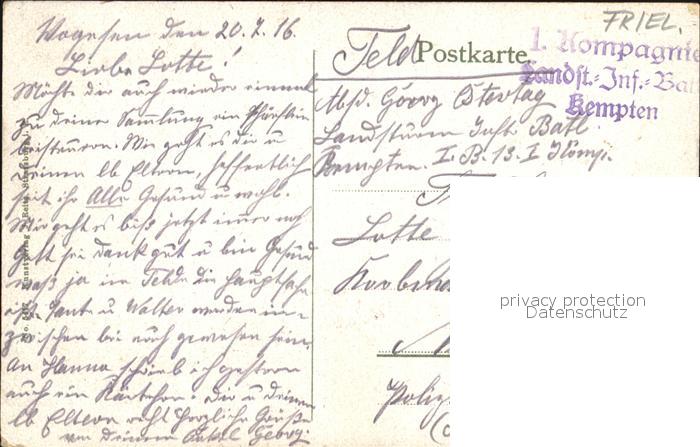 Vogesen den 20.7.16.
Liebe Lotte!
Möchte dir auch wieder einmal
zu deiner Sammlung ein Schärflein
beisteuern. Wie geht es dir u
deinen lb Eltern, hoffentlich
seit ihr Alle Gesund u wohl.
Mir geht es bis jetzt immer noch
Gott sei dank gut u bin Gesund
was ja im Felde die Hauptsache
ist. Tante u Walter werden in-
zwischen bei euch gewesen sein.
An Hanna schrieb ich gestern
auch ein Kärtchen. Dir u deinen
lb Eltern recht herzliche Grüße
von deinem Onkel Georg
FRIEL.
Feld Postkarte
1. Kompagnie
Landst.-Inf.-Bat
Kempten
Absd. Georg Ostertag
Landsturm Inft. Batl
Kempten. I. B. 13. I Komp.
Lotte
privacy protection
Datenschutz